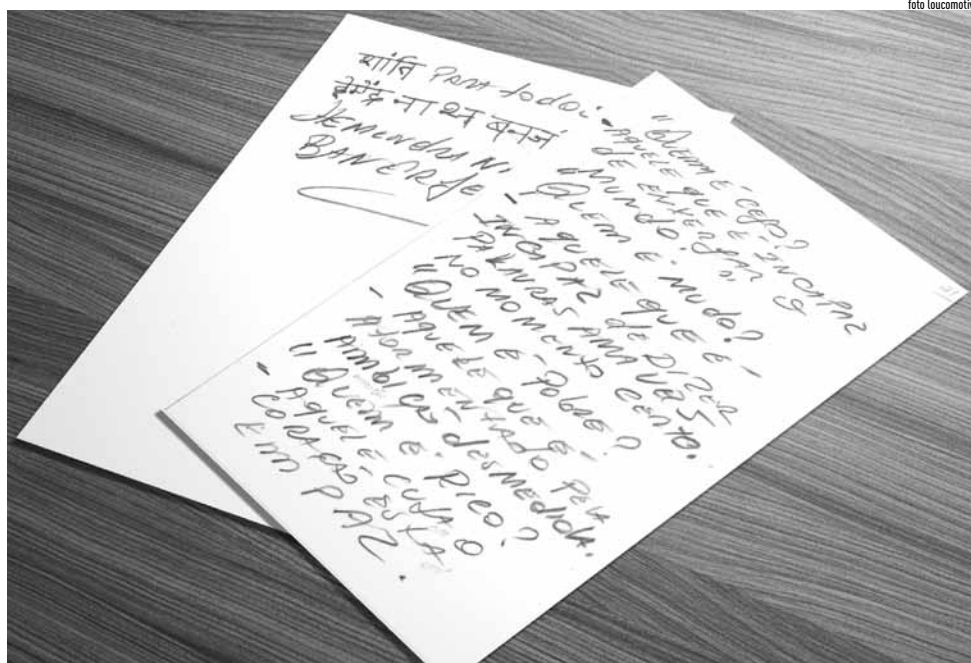 foto loucomotiv
शांति PARA todos
HEMENDRA N.
BANERJE
"QUEM É CEGO?
- AQUELE QUE É INCAPAZ
DE ENXERGAR O
MUNDO."
"QUEM É MUDO?
- AQUELE QUE É -
INCAPAZ de DIZER
PALAVRAS AMAVEIS
NO MOMENTO CERTO.
"QUEM É POBRE?
- AQUELE QUE É -
ATORMENTADO PELA
AMBIÇÃO desMEdidA.
"QUEM É RICO?
- AQUELE CUJO O
CORAÇÃO ESTÁ
EM PAZ.